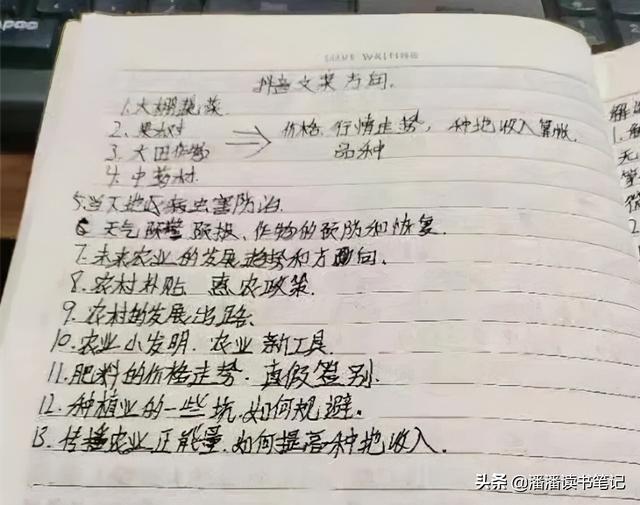 抖音文案方向.
1.大棚蔬菜.
2.果树
3.大田作物
4.中药材.
价格,行情走势,种地收入算账.
品种
5.当下地区病虫害防治.
6.天气预警 预报、作物的预防和恢复.
7.未来农业的发展趋势和方向.
8.农村补贴 惠农政策.
9.农村的发展出路.
10.农业小发明.农业新工具.
11.肥料的价格走势.真假鉴别.
12.种植业的一些坑.如何规避.
13.传播农业正能量.如何提高种地收入.
解
1.
无
2
头条 @潘潘读书笔记